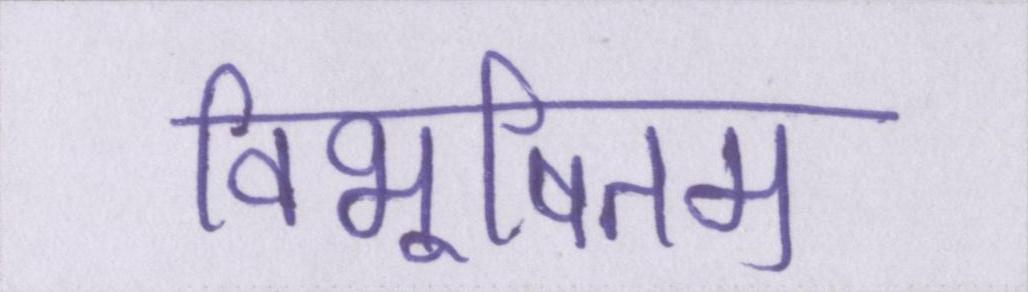 विभूषितम्